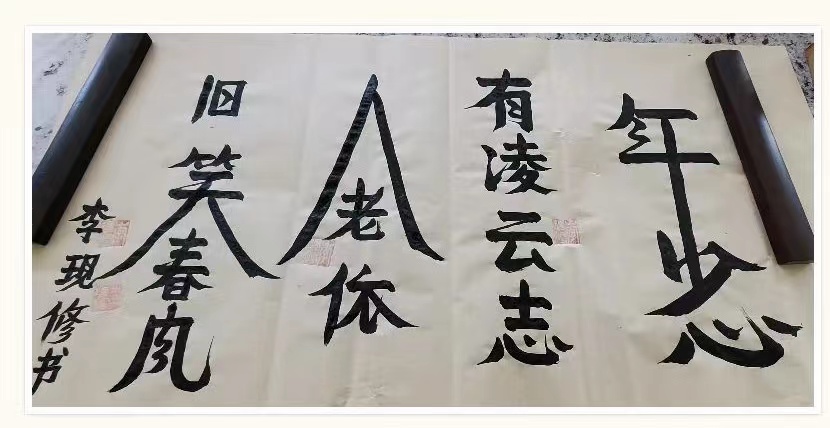 年少心
有凌云志
人老依
旧笑春风
李现修书